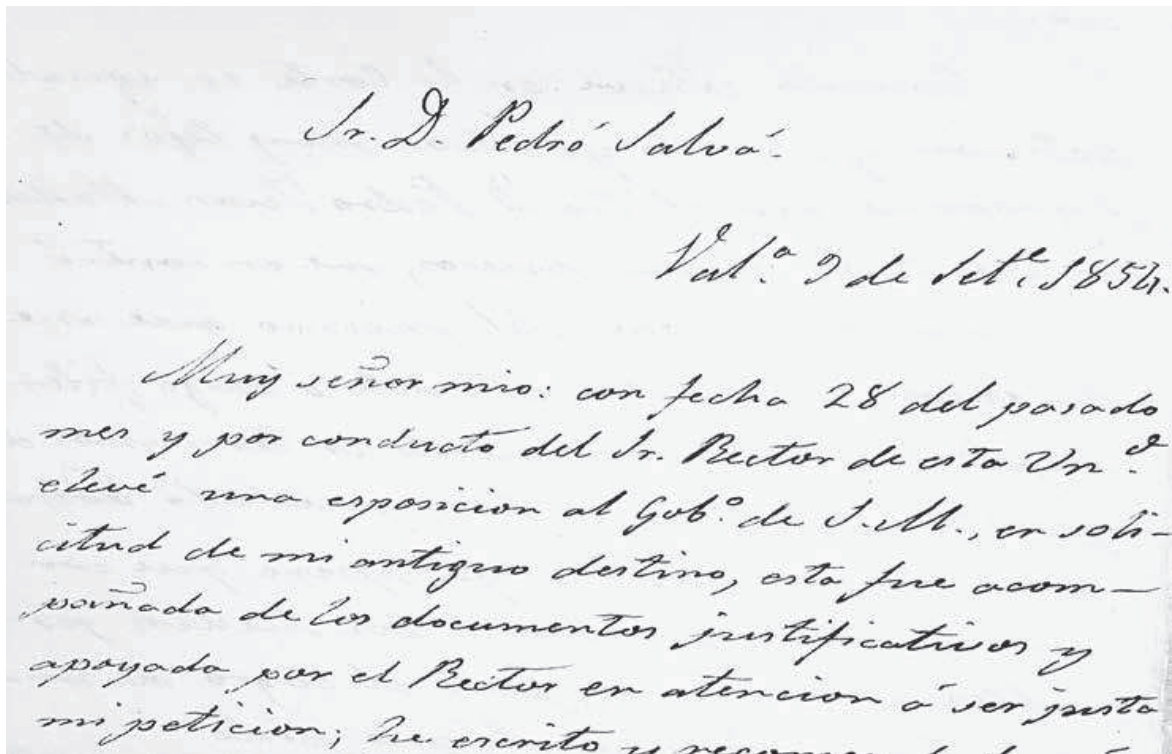 Sr. D. Pedró Salvá.
Val.ª 9 de Set.e 1854.
Muy señor mio: con fecha 28 del pasado
mes y por conducto del Sr. Rector de esta Un.d
elevé una esposicion al Gob.º de S.M., en soli-
citud de mi antiguo destino, esta fue acom-
pañada de los documentos justificativos y
apoyada por el Rector en atencion á ser justa
mi peticion; he escrito y